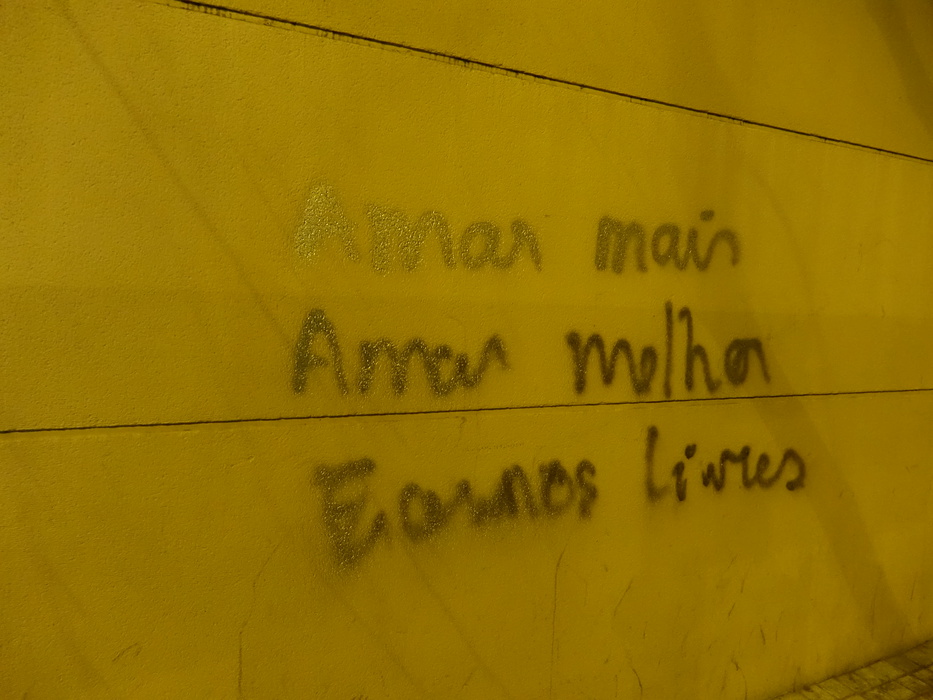 Amar mais
Amar melhor
E livres